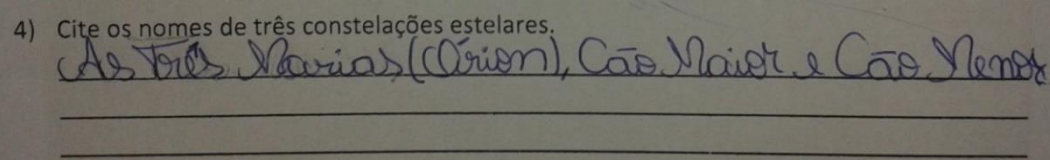 4) Cite os nomes de três constelações estelares.
As Três Marias (Órion), Cão Maior e Cão Menor